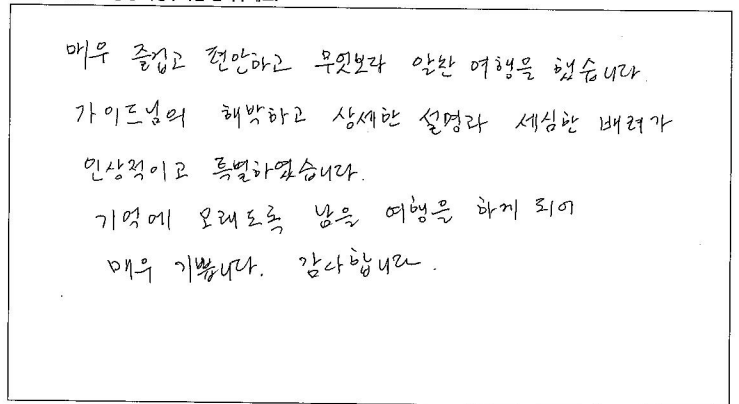 매우 즐겁고 편안하고 무엇보다 알찬 여행을 했습니다.
가이드님의 해박하고 상세한 설명과 세심한 배려가
인상적이고 특별하였습니다.
기억에 오래도록 남을 여행을 하게 되어
매우 기쁩니다. 감사합니다.